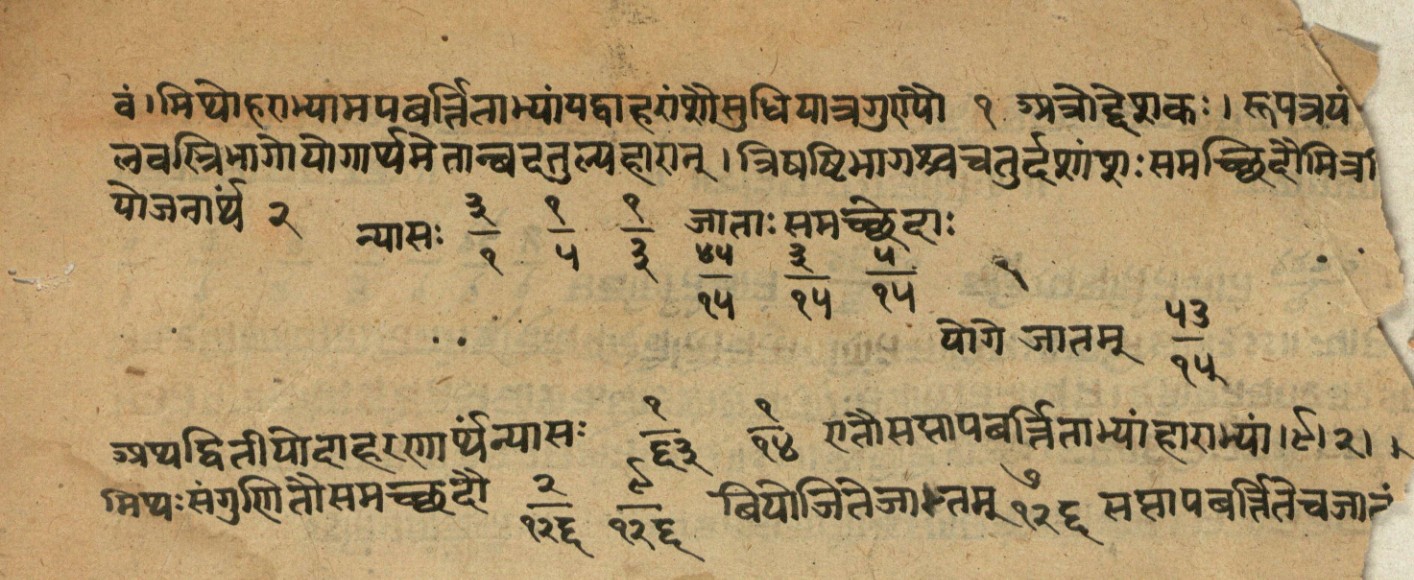 वं। मिथोहराभ्यामपबर्त्तिताभ्यांयद्वाहरांशौसुधियात्रगुण्यौ १ अत्रोद्देशकः। रूपत्रयं
लवस्त्रिभागोयोगार्थमेतान्बदतुल्यहारान्। त्रिषष्टिभागश्चचतुर्दशांशः समच्छिदौमित्र
योजनार्थं २ न्यासः ३/१ १/५ १/३ जाताः समच्छेदाः
४५/१५ ३/१५ ५/१५
योगे जातम् ५३/१५
अथद्वितीयोदाहरणार्थंन्यासः १/६३ १/१४ एतौसप्तापबर्त्तिताभ्यांहाराभ्यां। ९। २।
मिथः संगुणितौसमच्छदौ २/१२६ ९/१२६ बियोजितेजातम् ७/१२६ सप्तापबर्त्तितेचजातं